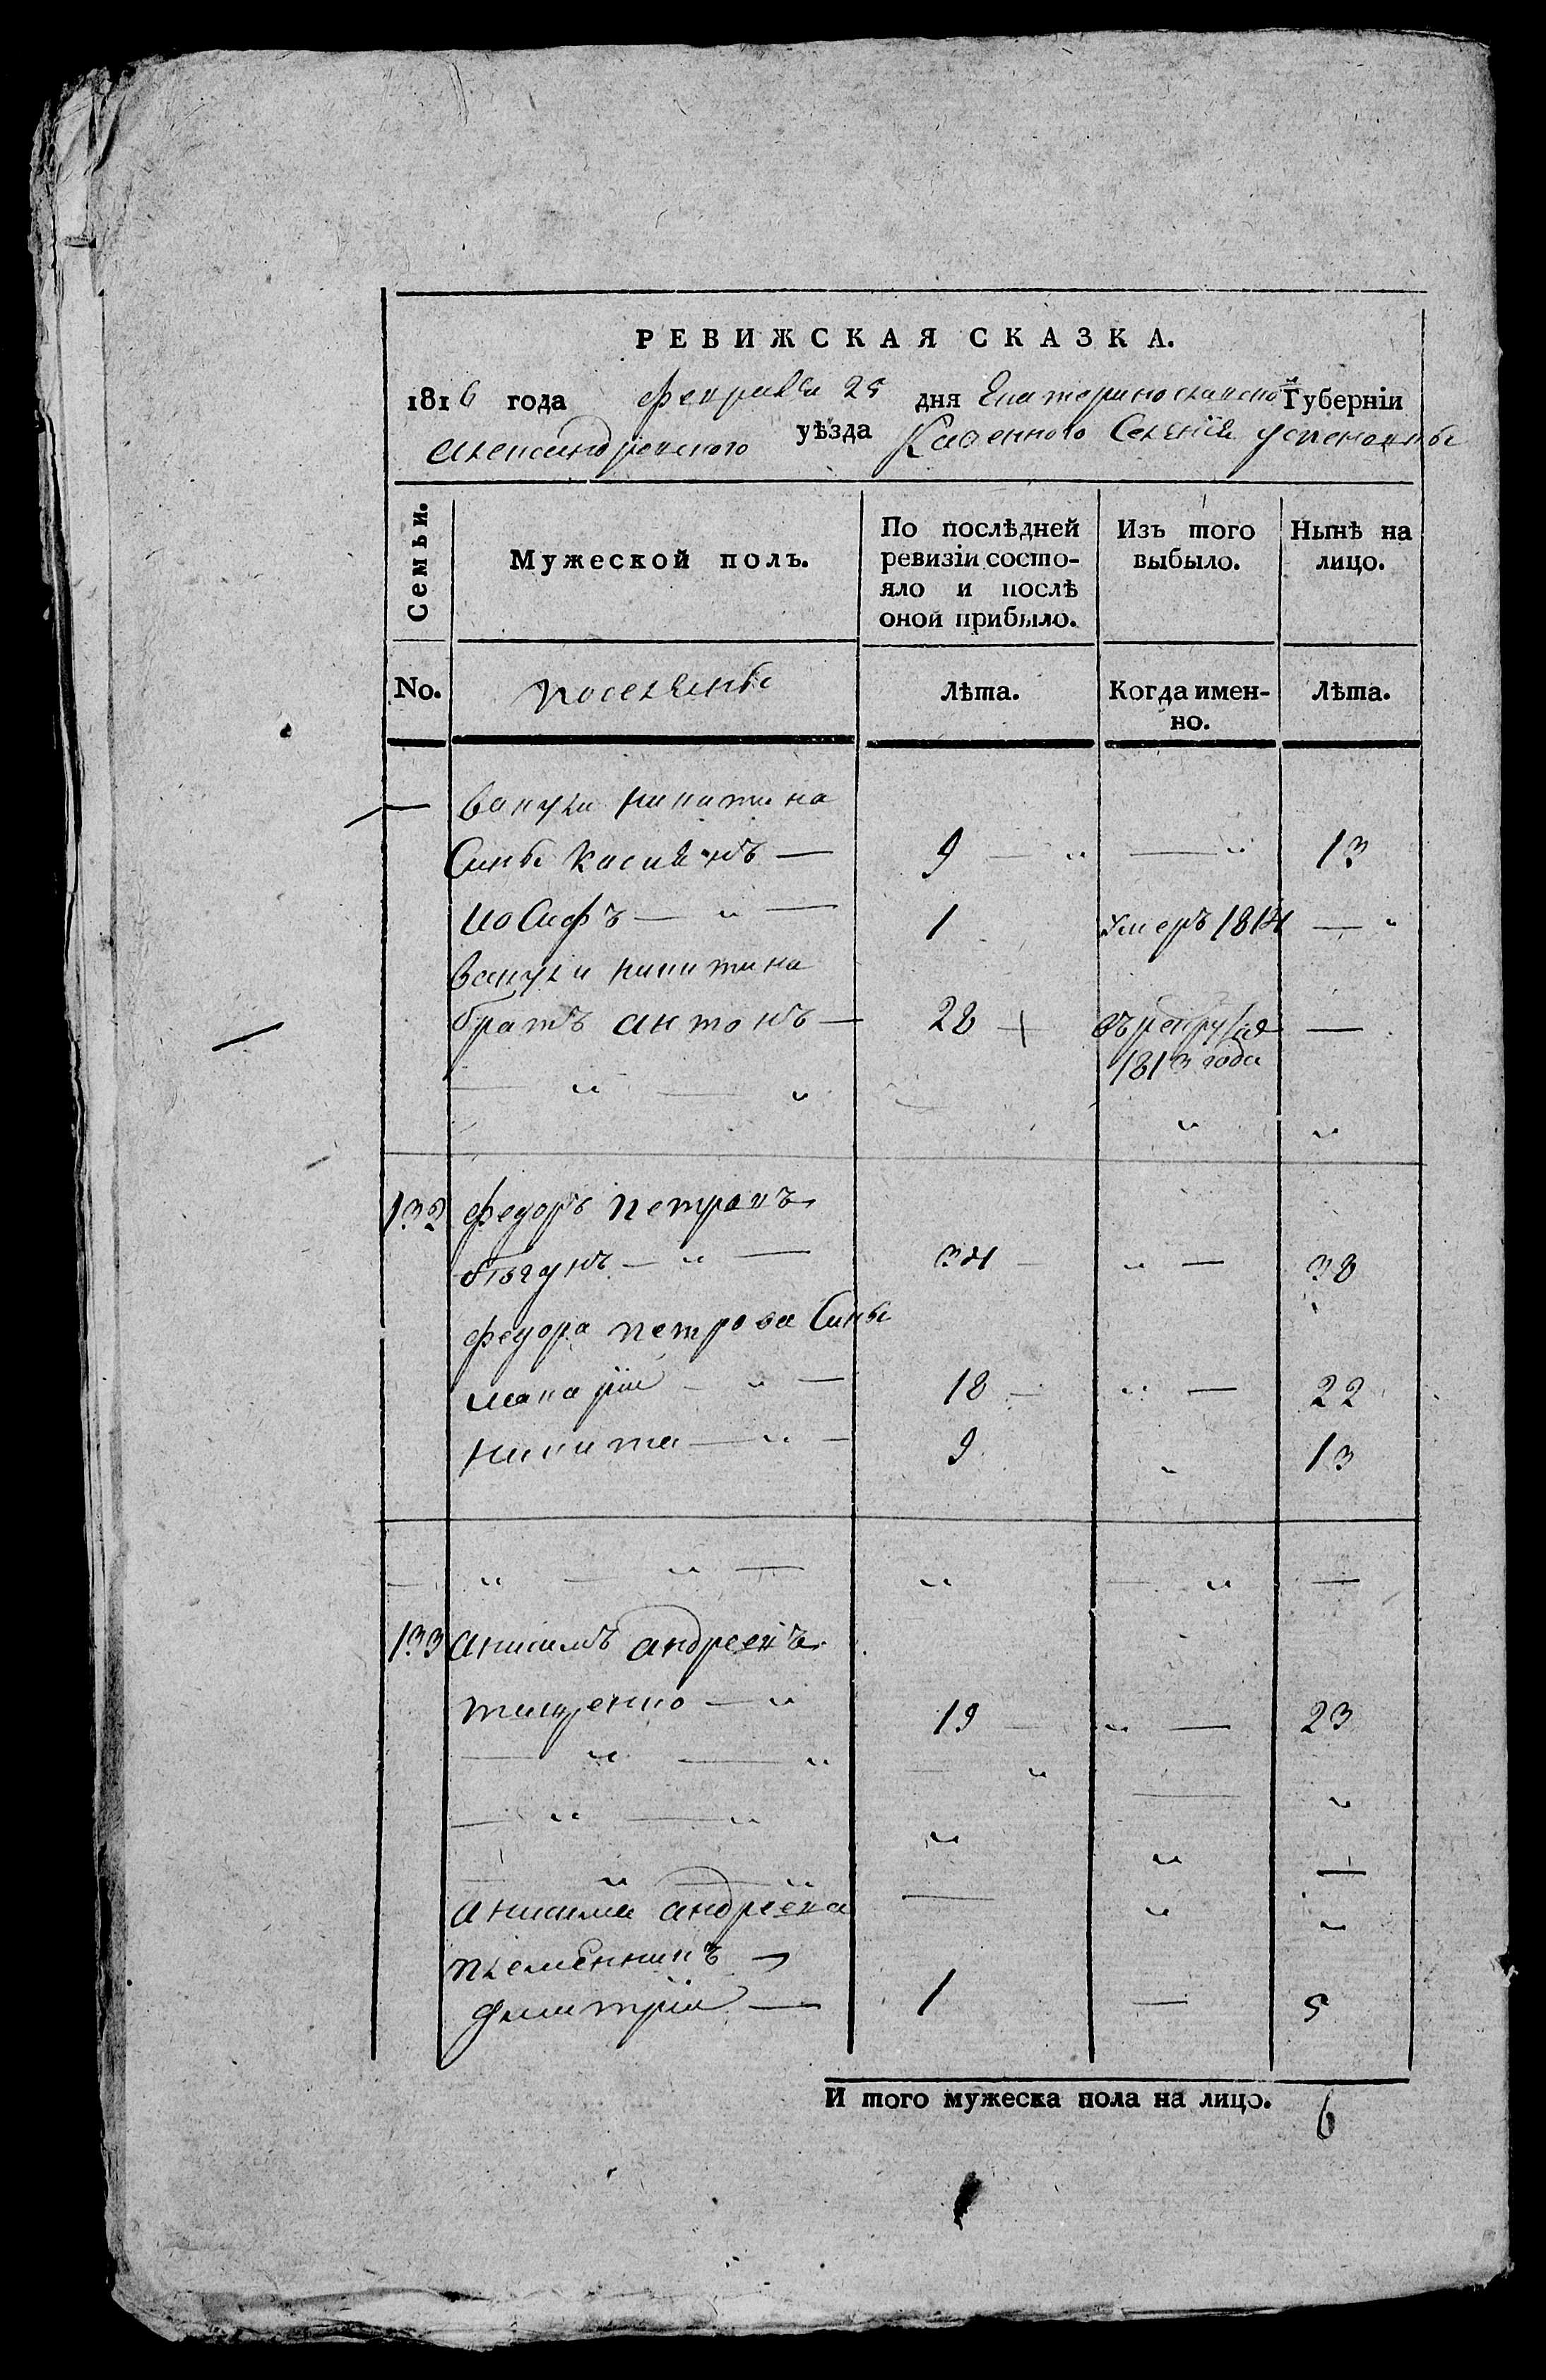 РЕВИЖСКАЯ СКАЗКА.
1816 года февраля 25 дня Екатеринославской Губерніи
александровского уѣзда Казенного Селенія успеновкы
Семьи. Мужеской полъ. По послѣдней ревизіи состо-яло и послѣ оной прибыло. Изъ того выбыло. Нынѣ на лицо.
No. поселяны Лѣта. Когда имен-но. Лѣта.
вакулы никитина
Сины касиянъ — 9 — „ — „ 13
иосифъ — „ — 1 умеръ 1814 — „
вакулы никитина
братъ антонъ — 28 въ рекруты —
1813 года
132 федоръ петровъ
бѣгунъ — „ — 34 — „ — 38
федора петрова Сины
макарій — „ — 18 — „ — 22
никита — „ — 9 „ 13
— „ — „ — „ — „ —
133 анисимъ андреевъ
тищенко — „ 19 — „ — 23
анисима андреева
племенникъ —
дмитрій — 1 — 5
И того мужеска пола на лицо. 6